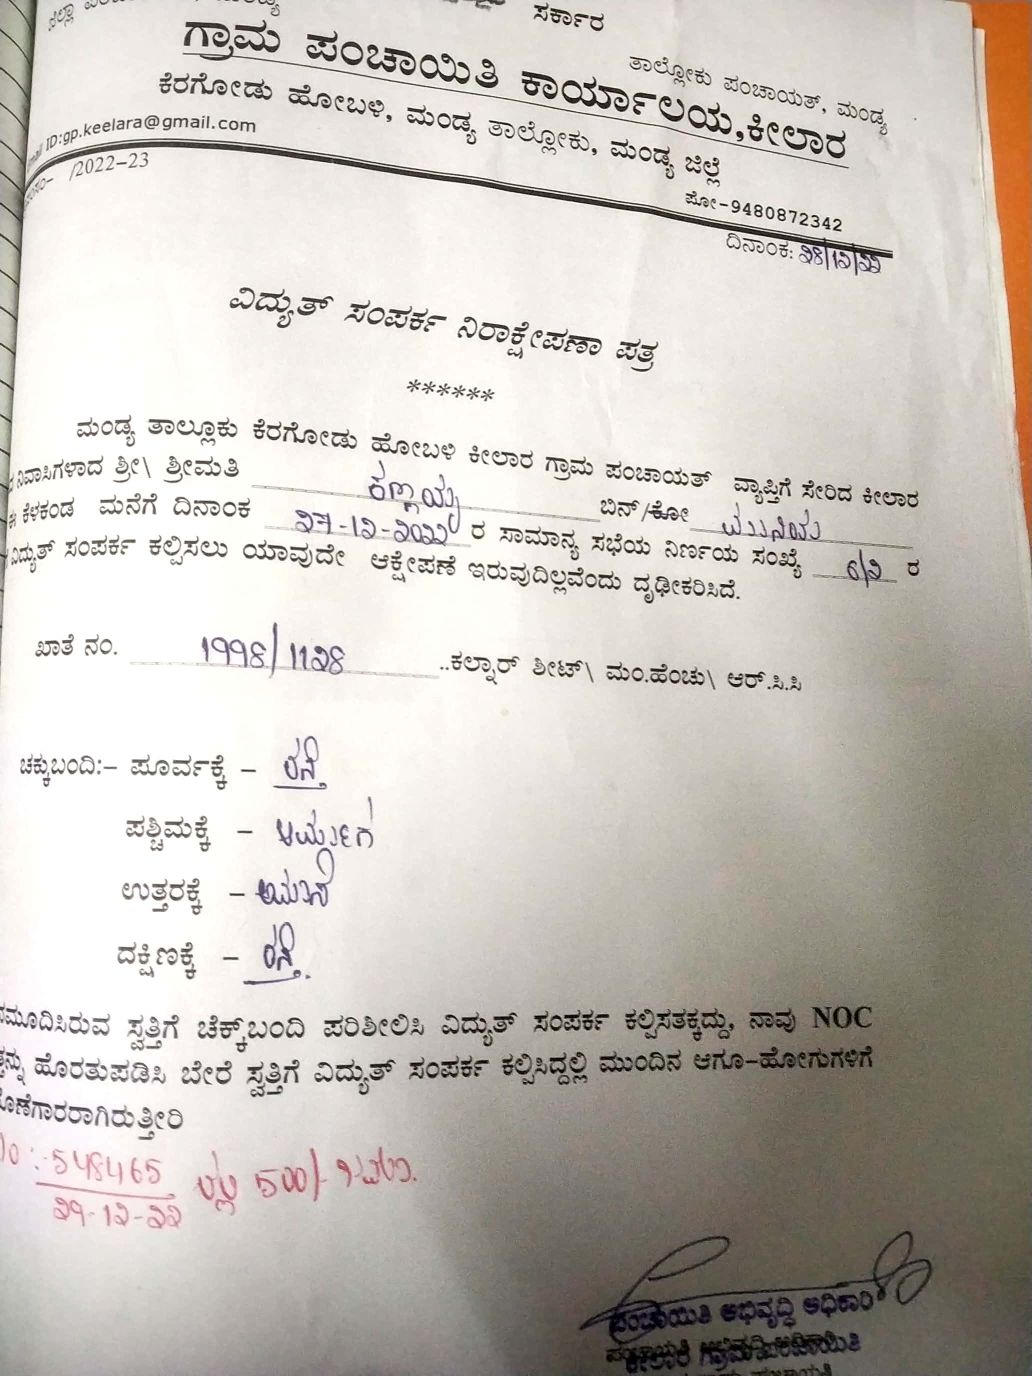 ಸರ್ಕಾರ
ತಾಲ್ಲೋಕು ಪಂಚಾಯತ್, ಮಂಡ್ಯ
ಗ್ರಾಮ ಪಂಚಾಯಿತಿ ಕಾರ್ಯಾಲಯ,ಕೀಲಾರ
ಕೆರಗೋಡು ಹೋಬಳಿ, ಮಂಡ್ಯ ತಾಲ್ಲೋಕು, ಮಂಡ್ಯ ಜಿಲ್ಲೆ
ID:gp.keelara@gmail.com
ಪೋ-9480872342
/2022-23
ದಿನಾಂಕ:
ವಿದ್ಯುತ್ ಸಂಪರ್ಕ ನಿರಾಕ್ಷೇಪಣಾ ಪತ್ರ
******
ಮಂಡ್ಯ ತಾಲ್ಲೂಕು ಕೆರಗೋಡು ಹೋಬಳಿ ಕೀಲಾರ ಗ್ರಾಮ ಪಂಚಾಯತ್ ವ್ಯಾಪ್ತಿಗೆ ಸೇರಿದ ಕೀಲಾರ
ನಿವಾಸಿಗಳಾದ ಶ್ರೀ\ ಶ್ರೀಮತಿ ಕಣ್ಣಯ್ಯ ಬಿನ್/ಕೋ
ಈ ಕೆಳಕಂಡ ಮನೆಗೆ ದಿನಾಂಕ ೨೯-೧೨-೨೦೨೨ ರ ಸಾಮಾನ್ಯ ಸಭೆಯ ನಿರ್ಣಯ ಸಂಖ್ಯೆ ರ
ವಿದ್ಯುತ್ ಸಂಪರ್ಕ ಕಲ್ಪಿಸಲು ಯಾವುದೇ ಆಕ್ಷೇಪಣೆ ಇರುವುದಿಲ್ಲವೆಂದು ದೃಢೀಕರಿಸಿದೆ.
ಖಾತೆ ನಂ. ..ಕಲ್ನಾರ್ ಶೀಟ್\ ಮಂ.ಹೆಂಚು\ ಆರ್.ಸಿ.ಸಿ
ಚಕ್ಕುಬಂದಿ:- ಪೂರ್ವಕ್ಕೆ - ರಸ್ತೆ
ಪಶ್ಚಿಮಕ್ಕೆ -
ಉತ್ತರಕ್ಕೆ - ಮನೆ
ದಕ್ಷಿಣಕ್ಕೆ - ರಸ್ತೆ.
ನಮೂದಿಸಿರುವ ಸ್ವತ್ತಿಗೆ ಚೆಕ್ಕ್‌ಬಂದಿ ಪರಿಶೀಲಿಸಿ ವಿದ್ಯುತ್ ಸಂಪರ್ಕ ಕಲ್ಪಿಸತಕ್ಕದ್ದು, ನಾವು NOC
ಹೊರತುಪಡಿಸಿ ಬೇರೆ ಸ್ವತ್ತಿಗೆ ವಿದ್ಯುತ್ ಸಂಪರ್ಕ ಕಲ್ಪಿಸಿದ್ದಲ್ಲಿ ಮುಂದಿನ ಆಗೂ-ಹೋಗುಗಳಿಗೆ
ಹೊಣೆಗಾರರಾಗಿರುತ್ತೀರಿ
548465 ರಲ್ಲಿ 500/-
೨೯-೧೨-೨೨
ಪಂಚಾಯಿತಿ ಅಭಿವೃದ್ಧಿ ಅಧಿಕಾರಿ
ಕೀಲಾರ ಗ್ರಾಮ ಪಂಚಾಯಿತಿ